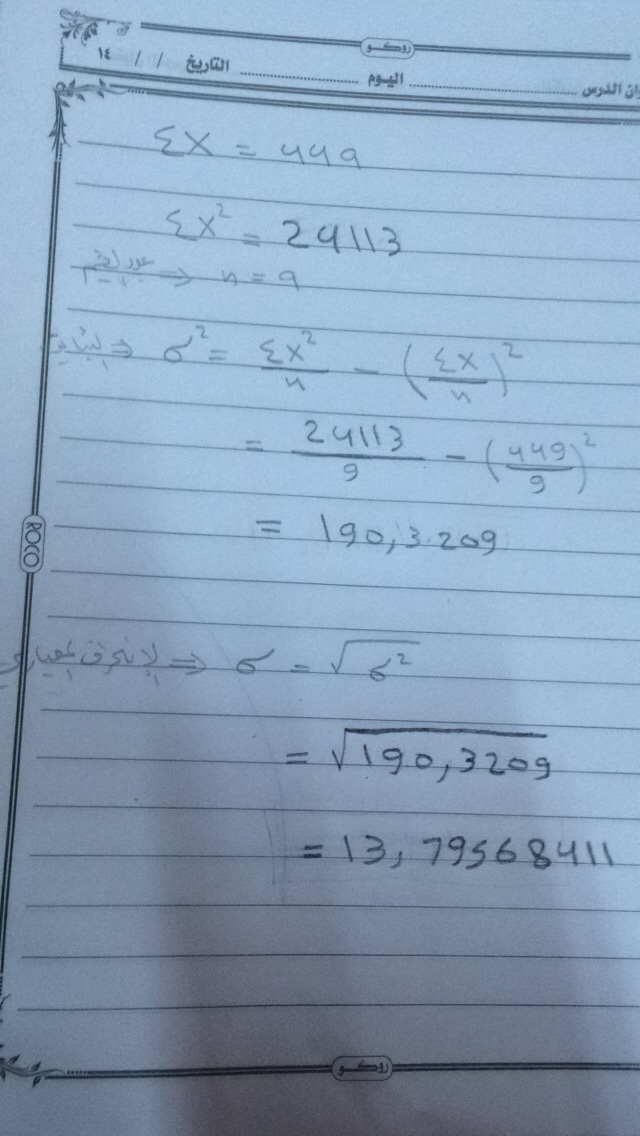 روكو
ان الدرس ............ اليوم ............ التاريخ / / ١٤
Σx = 449
Σx² = 24113
عدد القيم ⇐ n = 9
التباين ⇐ σ² = Σx²/n - (Σx/n)²
= 24113/9 - (449/9)²
= 190,3209
الانحراف المعياري ⇐ σ = √σ²
= √190,3209
= 13,79568411
ROCO
روكو